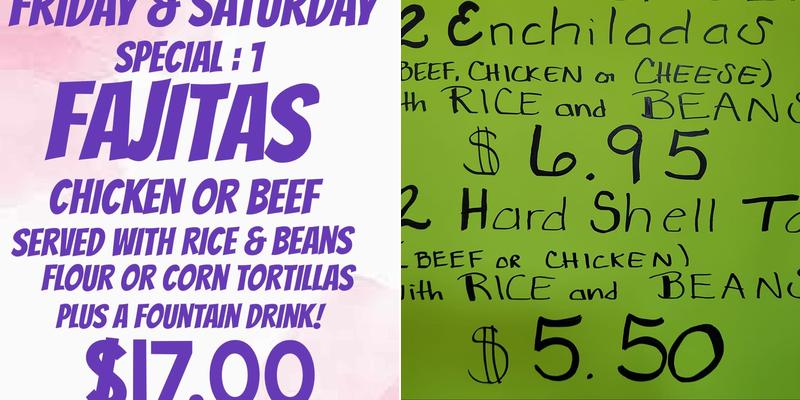 FRIDAY & SATURDAY
SPECIAL : 1
FAJITAS
CHICKEN OR BEEF
SERVED WITH RICE & BEANS
FLOUR OR CORN TORTILLAS
PLUS A FOUNTAIN DRINK!
$17.00
2 Enchiladas
BEEF, CHICKEN or CHEESE)
th RICE and BEANS
$ 6.95
2 Hard Shell Ta
(BEEF OR CHICKEN)
ith RICE and BEANS
$ 5.50